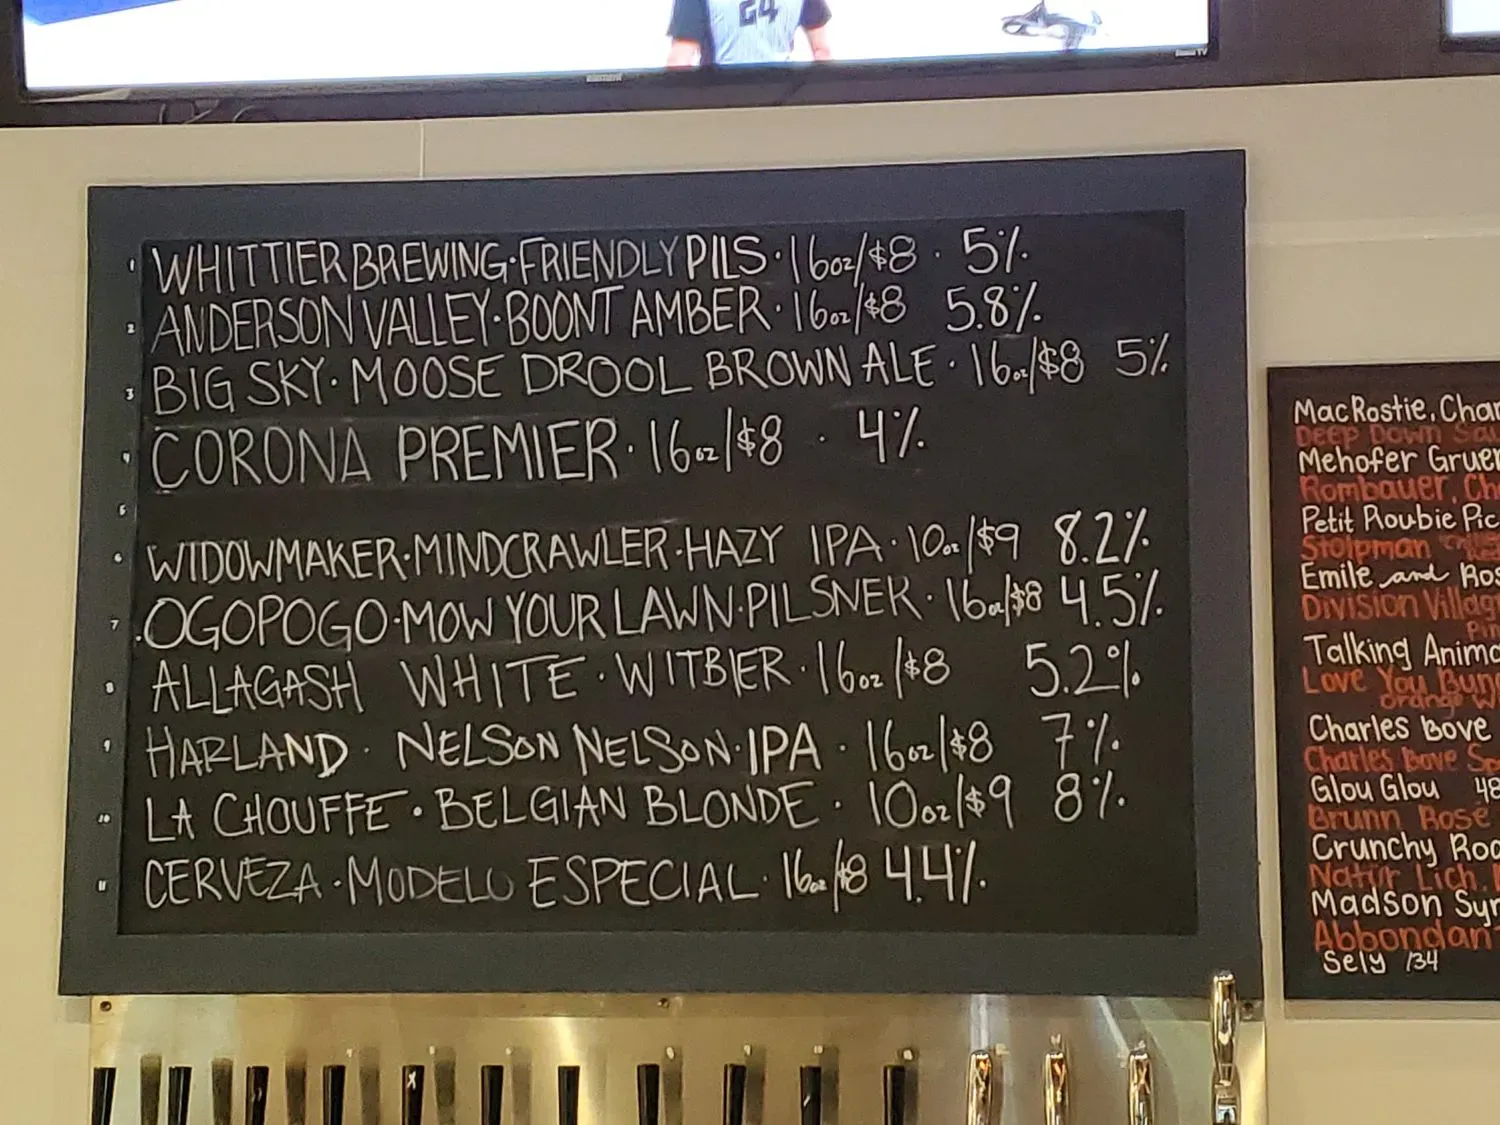 24
Roku TV
1 WHITTIER BREWING·FRIENDLY PILS·16oz/$8 · 5%
2 ANDERSON VALLEY·BOONT AMBER·16oz/$8 5.8%
3 BIG SKY·MOOSE DROOL BROWN ALE·16oz/$8 5%
4 CORONA PREMIER·16oz/$8 · 4%
5
6 WIDOWMAKER·MINDCRAWLER·HAZY IPA·10oz/$9 8.2%
7 OGOPOGO·MOW YOUR LAWN·PILSNER·16oz/$8 4.5%
8 ALLAGASH WHITE·WITBIER·16oz/$8 5.2%
9 HARLAND· NELSON NELSON·IPA·16oz/$8 7%
10 LA CHOUFFE·BELGIAN BLONDE·10oz/$9 8%
11 CERVEZA·MODELO ESPECIAL·16oz/$8 4.4%
MacRostie, Char
Deep Down Sau
Mehofer Gruen
Rombauer, Ch
Petit Roubie Pic
Stolpman
Emile and Ros
Division Villag
Pin
Talking Anima
Love You Bun
orange W
Charles Bove
Charles Bove Sp
Glou Glou 48
Brunn Rosé
Crunchy Roa
Natur Lich.
Madson Syr
Abbondan
Sely 134